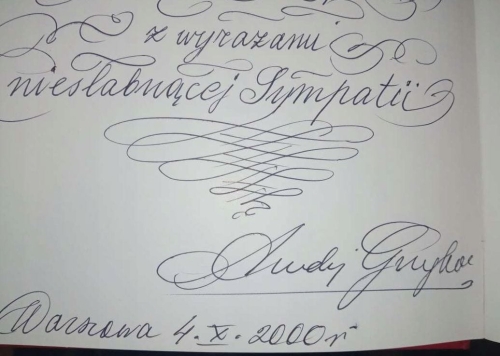 z wyrazami
niesłabnącej Sympatii
Warszawa 4.X.2000 r